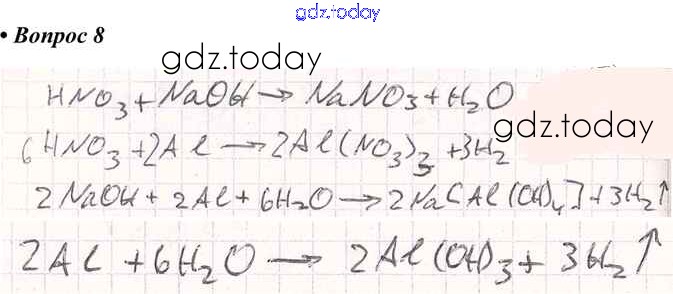 gdz.today
• Вопрос 8
gdz.today
HNO₃ + NaOH → NaNO₃ + H₂O
gdz.today
6HNO₃ + 2Al → 2Al(NO₃)₃ + 3H₂
2NaOH + 2Al + 6H₂O → 2Na[Al(OH)₄] + 3H₂↑
2Al + 6H₂O → 2Al(OH)₃ + 3H₂↑